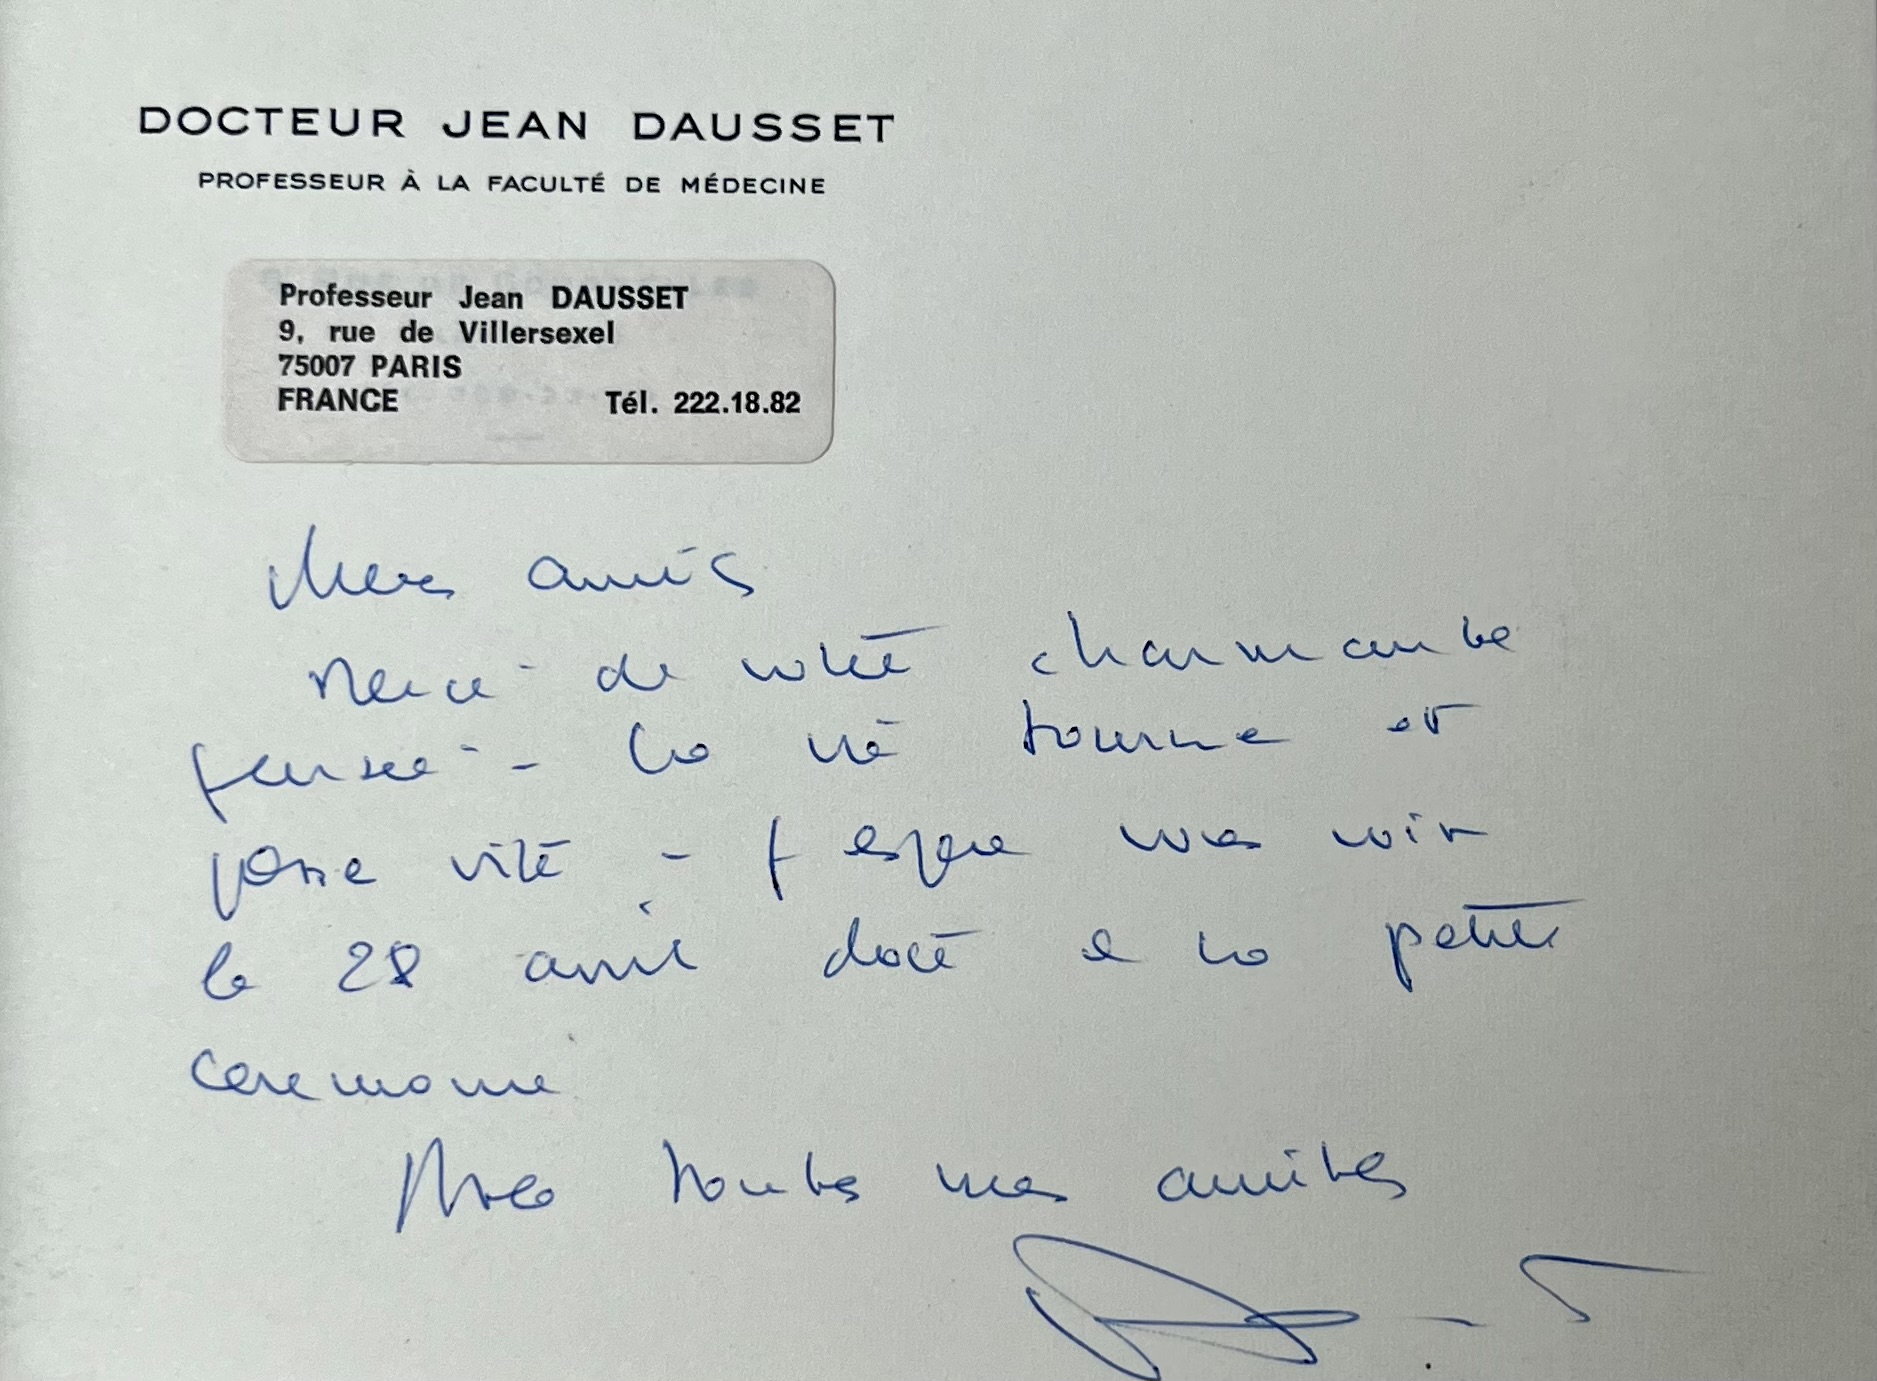 DOCTEUR JEAN DAUSSET
PROFESSEUR À LA FACULTÉ DE MÉDECINE
Professeur Jean DAUSSET
9, rue de Villersexel
75007 PARIS
FRANCE Tél. 222.18.82
Chers amis
Merci de votre charmante
pensée - La vie tourne et
passe vite - J espère vous voir
le 28 avril date de la petite
ceremonie
Avec toutes mes amitiés